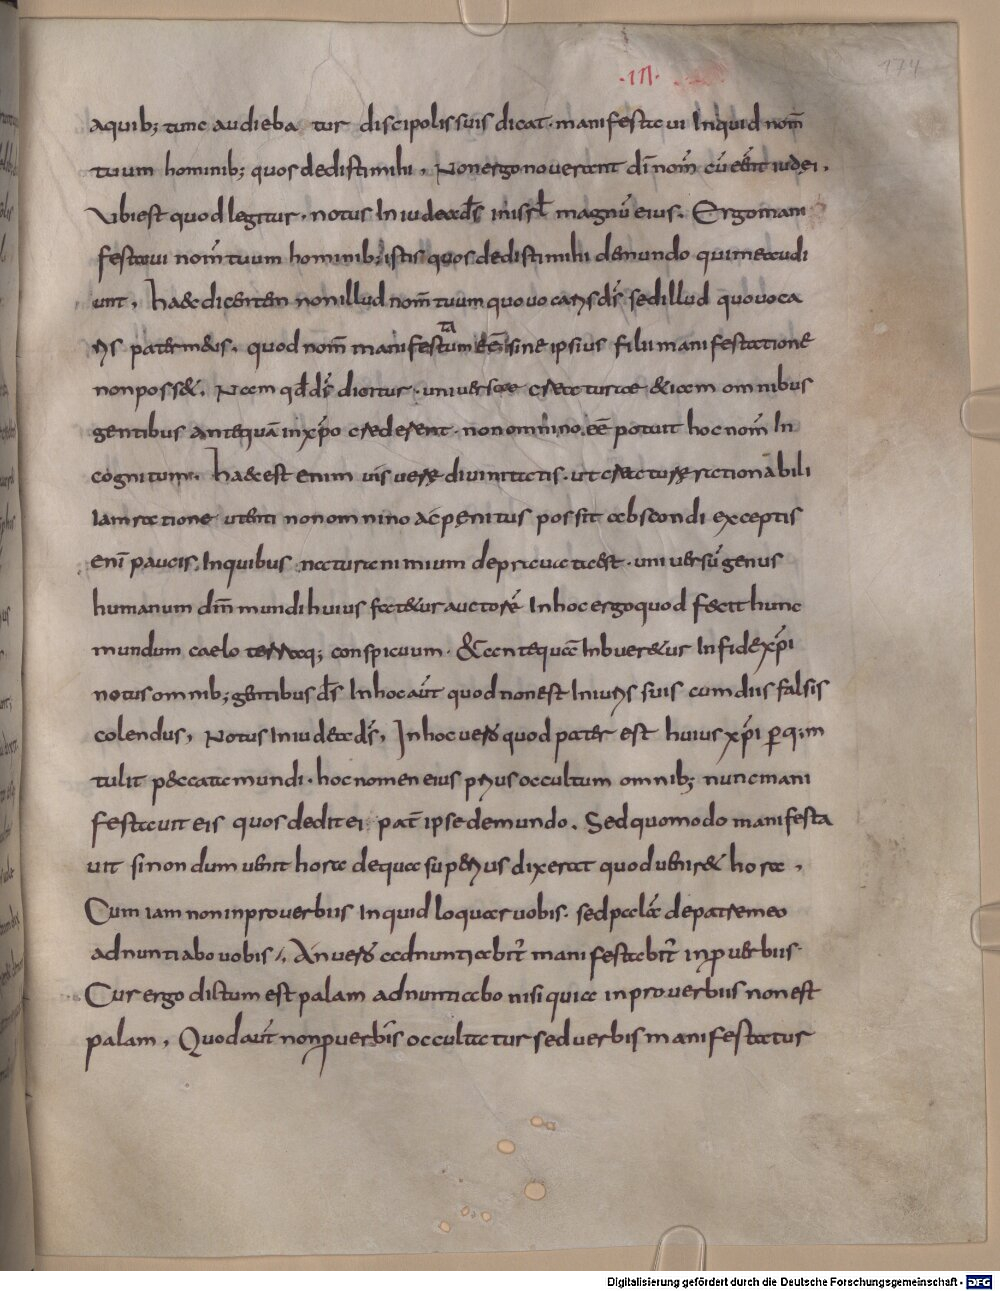 ·III·
174
aquib; tunc audieba tur discipolis suis dicat· manifestavi Inquid nom̄
tuum hominib; quos dedisti mihi, Non ergo noverant dī nom̄ cū eēnt iudei,
Ubi est quod legitur· notus In iudea d̄s in isrł magnū eius. Ergo mani
festavi nom̄ tuum hominib; istis quos dedisti mihi de mundo qui me audi
unt, haec dicentem non illud nom̄ tuum quo vocaris d̄s sed illud quo voca
ris pater meus. quod nom̄ manifestatum eē sine ipsius filii manifestatione
non posset. Nam qd d̄s dicitur· universae creaturae etiam omnibus
gentibus antequā in xp̄o crederent· non omnino eē potuit hoc nom̄ In
cognitum. haec est enim vis verę divinitatis· ut creaturę rationabili
Iam ratione utenti non omnino ac penitus possit abscondi exceptis
enī paucis In quibus natura nimium depravata est· universū genus
humanum dm̄ mundi huius fatetur auctorē In hoc ergo quod fecit hunc
mundum caelo terraq; conspicuum· et antequā Inbueretur In fide xp̄i
notus omnib; gentibus d̄s In hoc aūt quod non est Iniuris suis cum diis falsis
colendus, Notus In iudea d̄s, In hoc vero quod pater est huius xp̄i per q;m
tulit peccata mundi· hoc nomen eius prius occultum omnib; nunc mani
festavit eis quos dedit ei pat̄ ipse de mundo. Sed quomodo manifesta
vit si nondum venit hora de qua superius dixerat quod veniret hora,
Cum iam non in proverbiis Inquid loquar vobis· sed palā de patre meo
adnuntiabo vobis, An vero adnuntiabit̄ manifestabit̄ in proverbiis·
Cur ergo dictum est palam adnuntiabo nisi quia in proverbiis non est
palam, Quod aūt non proverbiis occultatur sed verbis manifestatur
Digitalisierung gefördert durch die Deutsche Forschungsgemeinschaft - DFG